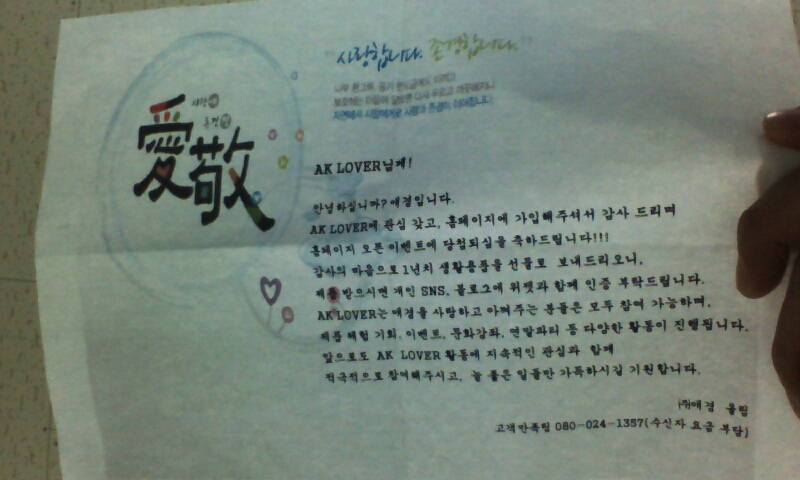 사랑합니다. 존경합니다.
사랑 애
존경 경
愛敬
자연에서 사람에게로 사랑과 존경이 이어집니다.
AK LOVER님께!
안녕하십니까? 애경입니다.
AK LOVER에 관심 갖고, 홈페이지에 가입해주셔서 감사 드리며
홈페이지 오픈 이벤트에 당첨되심을 축하드립니다!!!
감사의 마음으로 1년치 생활용품을 선물로 보내드리오니,
제품 받으시면 개인 SNS, 블로그에 위젯과 함께 인증 부탁드립니다.
AK LOVER는 애경을 사랑하고 아껴주는 분들은 모두 참여 가능하며,
제품 체험 기회, 이벤트, 문화강좌, 연말파티 등 다양한 활동이 진행됩니다.
앞으로도 AK LOVER 활동에 지속적인 관심과 함께
적극적으로 참여해주시고, 늘 좋은 일들만 가득하시길 기원합니다.
㈜애경 올림
고객만족팀 080-024-1357(수신자 요금 부담)